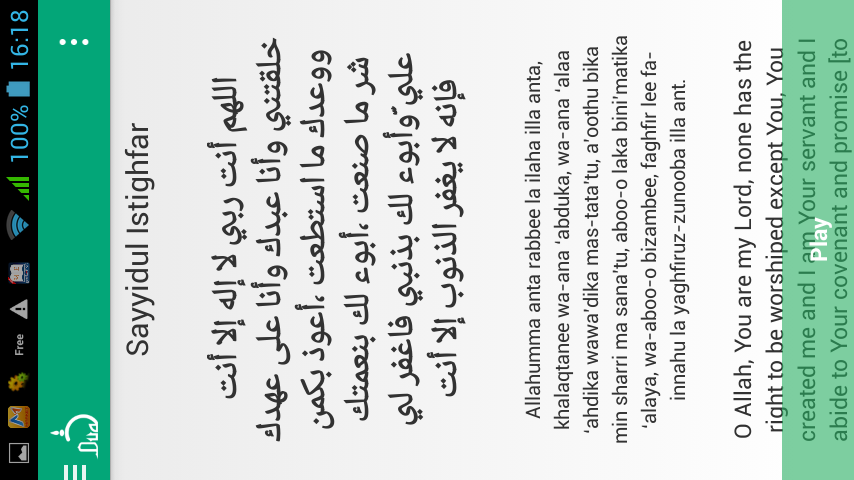 Free
100% 16:18
Sayyidul Istighfar
اللهم أنت ربي لا إله إلا أنت
خلقتني وأنا عبدك وأنا على عهدك
ووعدك ما استطعت ،أعوذ بكمن
شر ما صنعت ،أبوء لك بنعمتك
علي ّوأبوء لك بذنبي فاغفر لي
فإنه لا يغفر الذنوب إلا أنت
Allahumma anta rabbee la ilaha illa anta,
khalaqtanee wa-ana ‘abduka, wa-ana ‘alaa
‘ahdika wawa’dika mas-tata’tu, a’oothu bika
min sharri ma sana’tu, aboo-o laka bini’matika
‘alaya, wa-aboo-o bizambee, faghfir lee fa-
innahu la yaghfiruz-zunooba illa ant.
O Allah, You are my Lord, none has the
right to be worshiped except You, You
created me and I am Your servant and I
abide to Your covenant and promise [to
Play